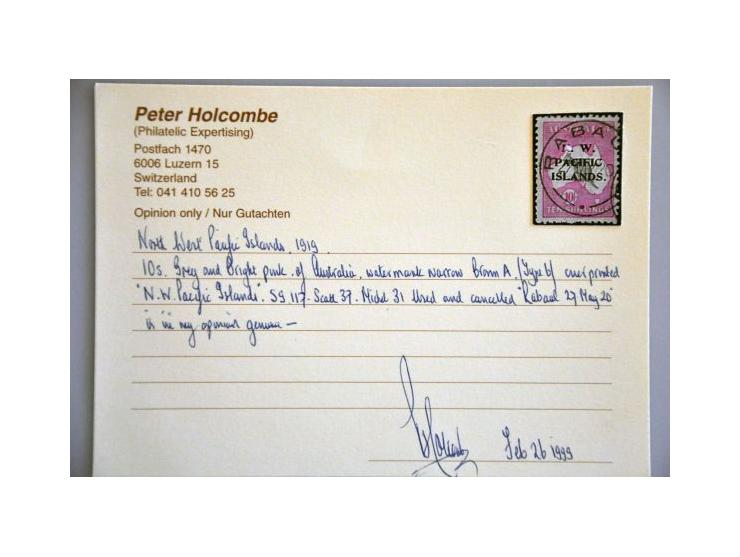 Peter Holcombe
(Philatelic Expertising)
Postfach 1470
6006 Luzern 15
Switzerland
Tel: 041 410 56 25
Opinion only / Nur Gutachten
RABAUL
N. W.
PACIFIC
ISLANDS.
TEN SHILLINGS
North West Pacific Islands. 1919
10s. Grey and Bright pink. of Australia. watermark narrow Crown A. (Type b) overprinted
"N.W. Pacific Islands". SG 117. Scott 37. Michel 31 Used and cancelled "Rabaul 27 May 20"
is in my opinion genuine —
Feb 26 1999